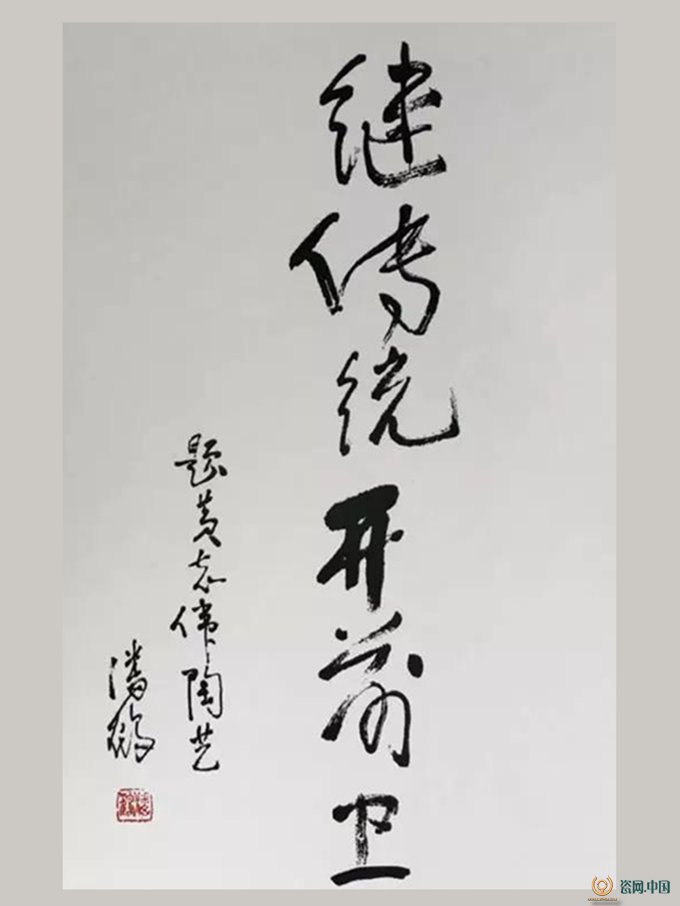 继传统开前卫
题黄志伟陶艺
潘鹤
瓷网.中国